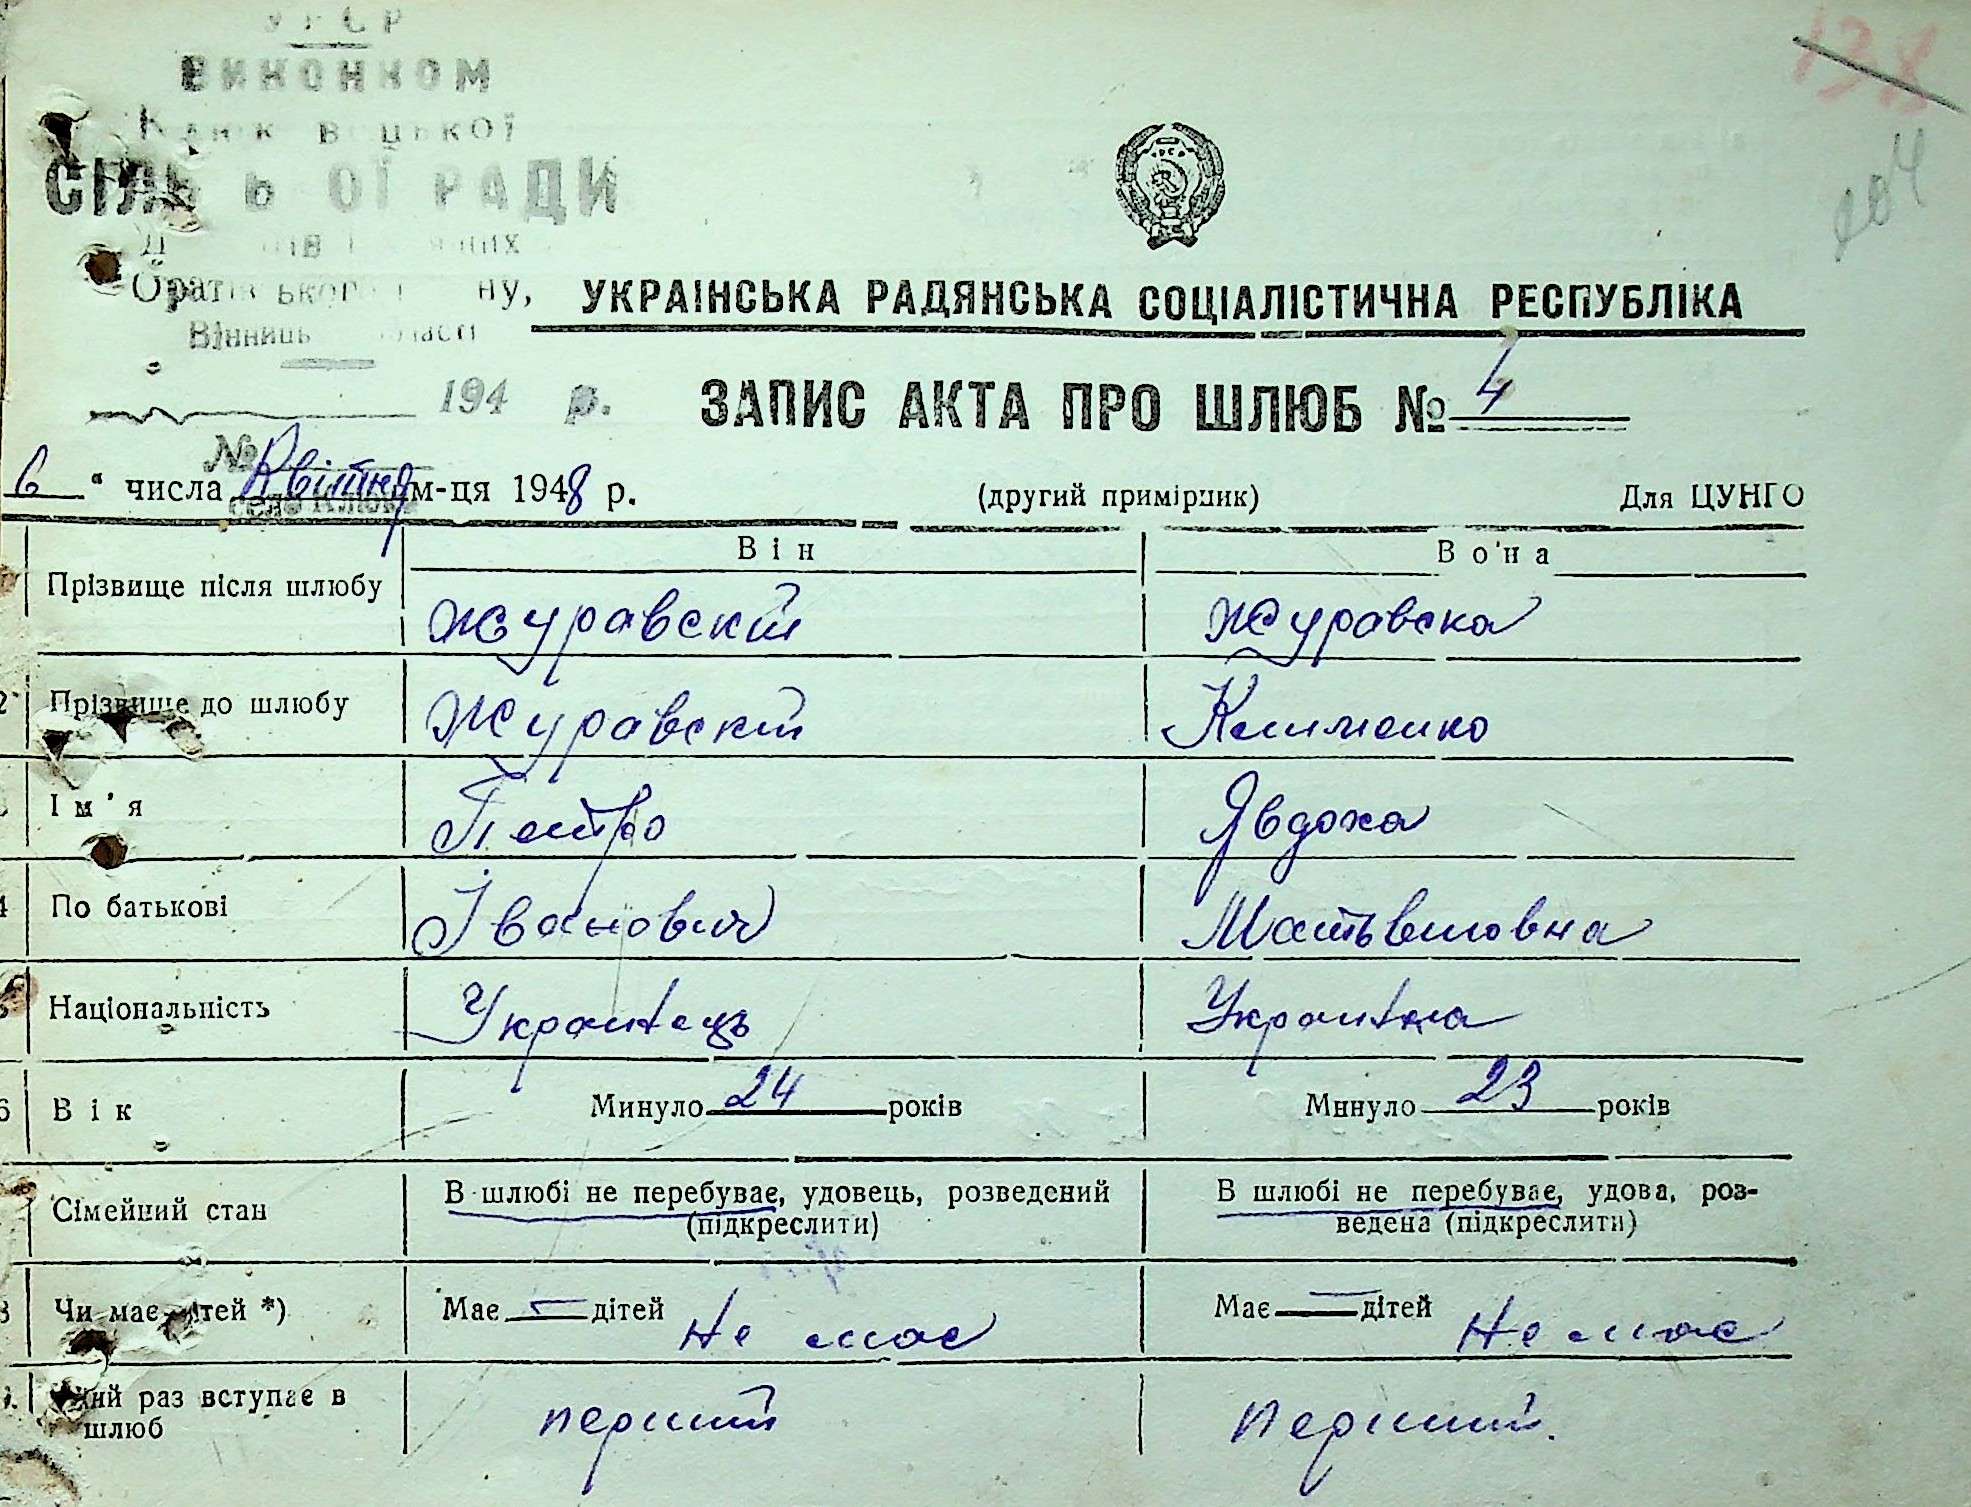 УРСР
ВИКОНКОМ
СІЛЬ Ь ОЇ РАДИ
УКРАЇНСЬКА РАДЯНСЬКА СОЦІАЛІСТИЧНА РЕСПУБЛІКА
194 р. ЗАПИС АКТА ПРО ШЛЮБ № 4
№
6 " числа Квітня м-ця 1948 р. (другий примірник) Для ЦУНГО
село
Він Вона
Прізвище після шлюбу Журавскій Журавска
2 Прізвище до шлюбу Журавскій Клименко
Ім'я Петро Явдоха
4 По батькові Іванович Матьвиловна
Національність Украінець Украінка
6 Вік Минуло 24 років Минуло 23 років
Сімейний стан В шлюбі не перебуває, удовець, розведений (підкреслити) В шлюбі не перебуває, удова, роз-
ведена (підкреслити)
8 Чи має дітей *) Має — дітей Не має Має — дітей Не має
раз вступає в шлюб перший перший.
138
204